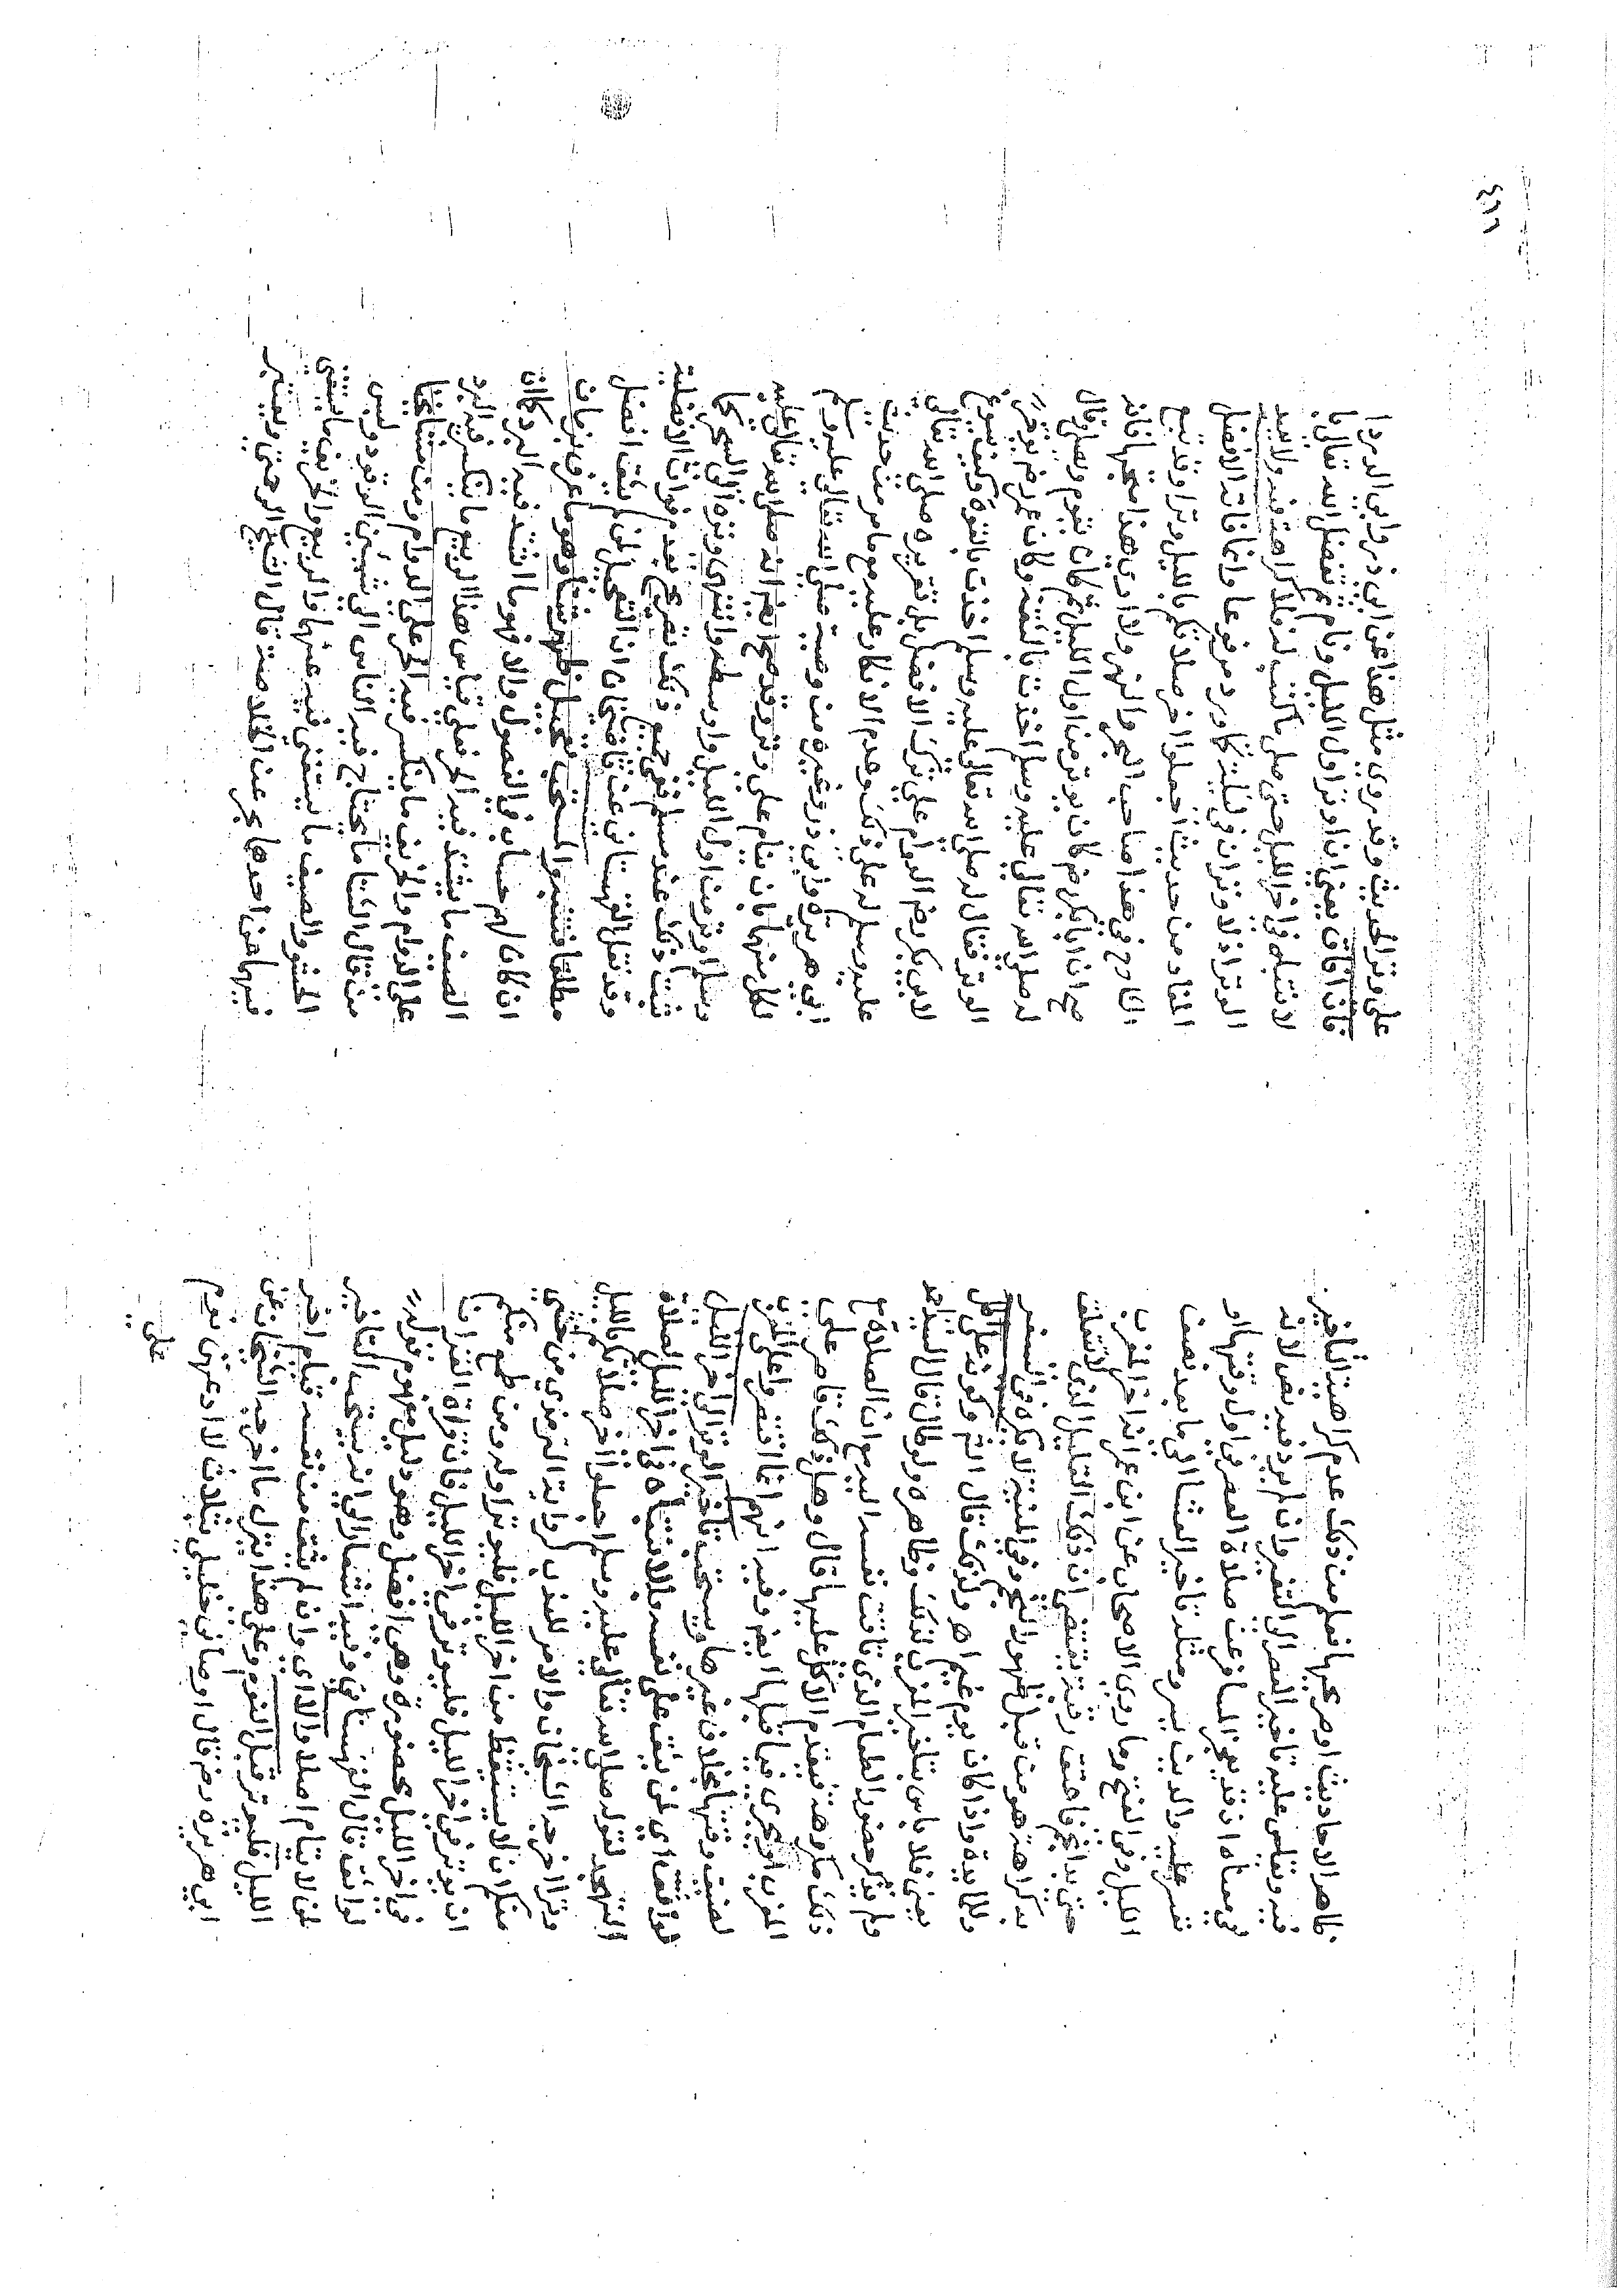 ظاهر الاحاديث اوصريحها فعلم من ذلك عدم كراهية التاخير
فيه وتقلي عليه تاخير العصر الى التغير وان لم يرد فيه نص لانه
في معناه اذ قد يعجز المسافر عن صلاة العصر في اول وقتها او
تعسر عليه والدين يسر ومثله تاخير العشا الى ما بعد نصف
الليل وفي الفتح وما روى الاصحاب عن ابن عمر انه اخر المغرب
حتى بدا نجم فاعتق رقبة يقتضي ان ذلك القليل الذي لا يتعلق
به كراهة هو من قبل ظهور النجم وفي المنية لا يكره في السفر
وللمايدة او اذا كان يوم غيم اهـ ولذلك قال الشم وكونه على اكل
يعني فلا باس بتاخير المغرب لذلك وظاهره ولو طال قال السيد احمد
ولم يذكر حضور الطعام الذي تاقت نفسه اليه مع ان الصلاة مع
ذلك مكروهة فيقدم الاكل عليها قال وهل ذلك قاصر على
المغرب او يجرى فيما قبلها ايض وفيه انهم انما اقتصروا على المغرب
لضيق وقتها بخلاف غيرها ويستحب تاخير الوتر الى اخر الليل
لواثق اي لمن يثق على نفسه بالانتباه في اخر الليل لصلاة
التهجد لقوله صلى الله تعالى عليه وسلم اجعلوا اخر صلاتكم بالليل
وترا اخرجه الشيخان والامر للندب لرواية الترمذي من خشي
منكم ان لا يستيقظ من اخر الليل فليوتر اوله ومن طمع منكم
ان يوتر في اخر الليل فليوتر في اخر الليل فان قراءة القران
في اخر الليل محضورة وهي افضل وهو دليل مفهوم قوله
لواثق قال القهستاني وفيه اشعار الى انه يستحب التاخير
لمن لا ينام اصلا والا اي وان لم يثق من نفسه قيام اخر
الليل فليوتر قبل النوم وعلى هذا ينزل ما اخرجه الشيخان عن
ابي هريرة رض قال اوصاني خليلي بثلاث لا ادعهن نوم
على
على وتر الحديث وقد روي مثل هذا عن ابي ذر وابي الدردا
فان افاق يعني ان اوتر اول الليل ونام ثم تفضل الله تعالى با
لانتباه في اخر الليل حتى صلى ما كتب له فلا كراهة فيه ولا يعيد
الوتر اذ لا وتران في ليلة كما ورد مرفوعا وانما فاته الافضل
المفاد من حديث اجعلوا اخر صلاتكم بالليل وترا وقد تبع
الشارح في هذا صاحب البحر والنهر ولا ادري هذا متجها فانه
صح ان ابا بكر رض كان يوتر من اول الليل ثم كان يقوم ويصلي وقال
له صلى الله تعالى عليه وسلم اخذت بالثقة وكان عمر رض يوتر
الوتر فقال له صلى الله تعالى عليه وسلم اخذت بالقوة وكيف يسوغ
لابي بكر رض الدوام على ترك الافضل بل تقريره صلى الله تعالى
عليه وسلم له على ذلك وعدم الانكار عليه مع ما مر من حديث
ابي هريرة وابي ذر وغيره من وصيته صلى الله تعالى عليه وسلم
لكل منهما بان ينام على وتر وقد صح ايض انه صلى الله تعالى عليه
وسلم اوتر من اول الليل واوسطه وانتهى وتره الى السحر كما
ثبت ذلك عند مسلم ففي جميع ذلك تصريح بعدم فوات الافضلية
وقد نقل القهستاني عن قاضي خان ان التعجيل لمن لم يثق افضل
مطلقا فتنبه والمستحب تعجيل ظهر شتا وهو ما عرف بزمان
ان كان لهم حساب في الفصول والا فهو ما اشتد فيه البرد كما ان
الصيف ما يشتد فيه الحر فعلى قياس هذا الربيع ما ينكسر فيه البرد
على الدوام والخريف ما ينكسر فيه الحر على الدوام ومن مشايخنا
من قال الشتا ما يحتاج فيه الناس الى شيئين الوقود ولبس
الحشو والصيف ما يستغني فيه عنهما والربيع والخريف ما يستغني
فيهما عن احدهما بحر عن الخلاصة قال الشيخ الرحمتي ويعتبر